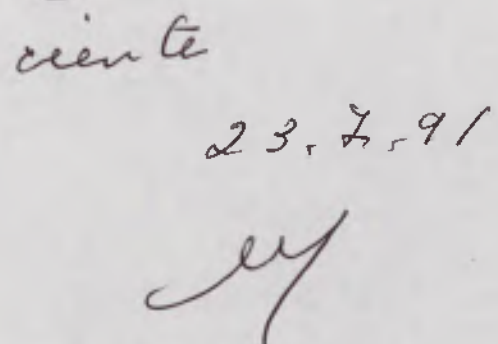 ciente
23.7.91